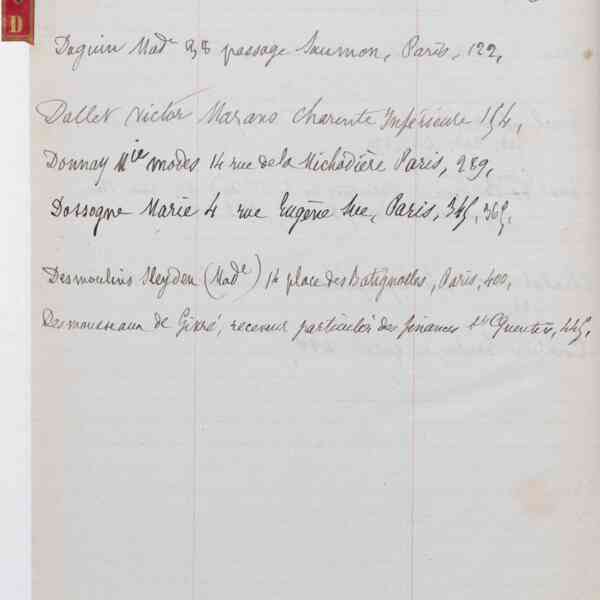 D
Daguin Made 38 passage Saumon, Paris, 122,
Dallet Victor Marans Charente Inférieure 154,
Donnay Mie modes 14 rue de la Michodière Paris, 289,
Dossogne Marie 4 rue Eugène Sue, Paris, 345, 365,
Desmoulins Heyden (Made) 14 place des Batignolles, Paris, 400,
Desmousseaux de Givré, receveur particulier des finances St Quentin, 445,